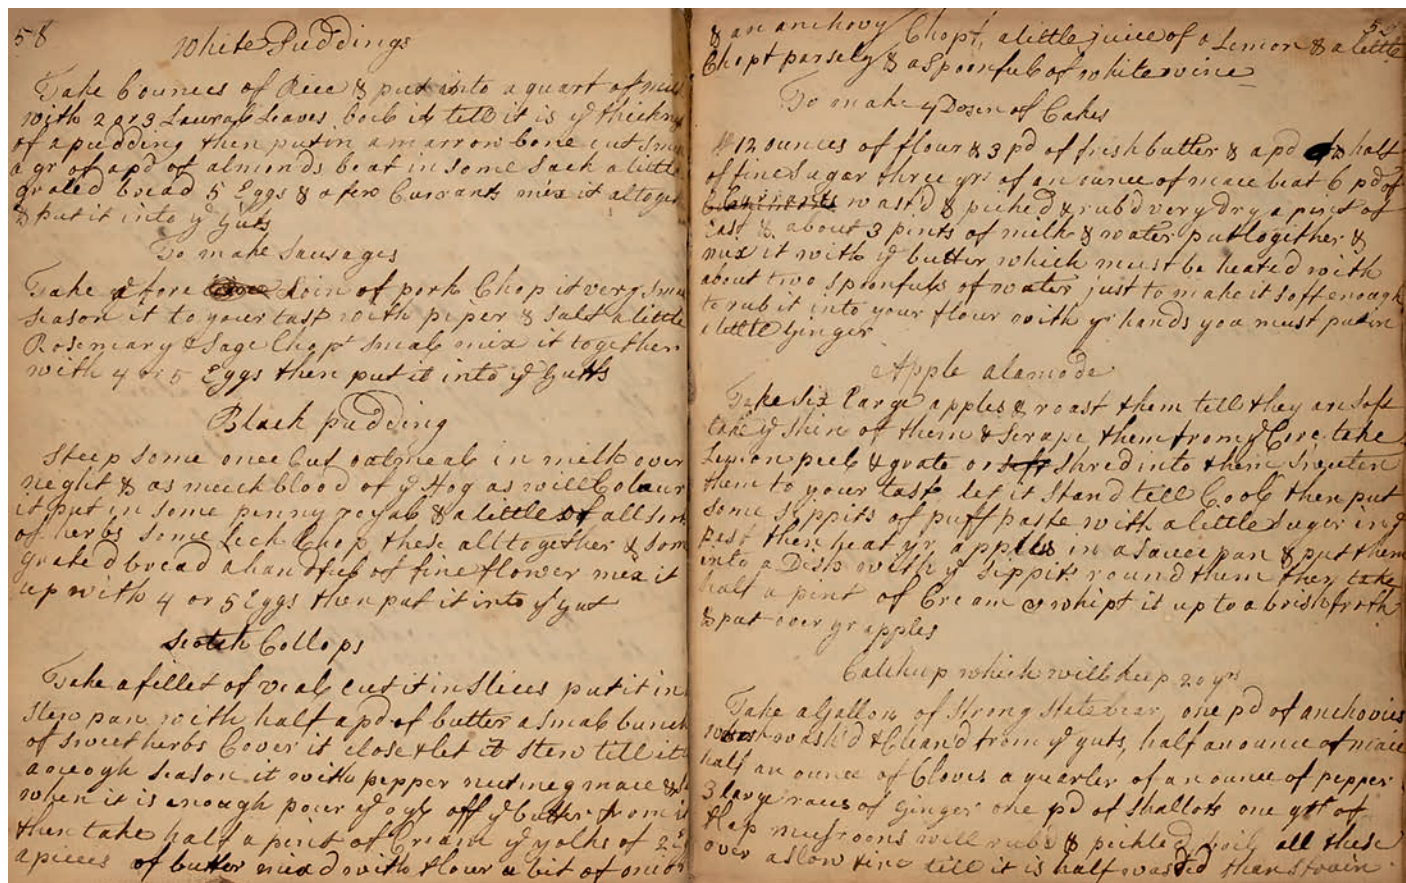 58
White Puddings
Take 6 ounces of Rice & put into a quart of
with 2 or 3 Laurall Leaves boil it till it is ye
of a pudding then put in a marrow bone cut
a qr of a pd of almonds beat in some Sack a little
grated bread 5 Eggs & a few Currants mix it
& put it into ye guts
To make Sausages
Take ye fore Loin of pork Chop it very
season it to your tast with piper & salt a little
Rosemary & Sage Chopt small mix it together
with 4 or 5 Eggs then put it into ye Gutts
Black pudding
Steep some once Cut oatmeal in milk over
neght & as much blood of ye Hog as will Colour
it put in some penny royal & a little of all
of herbs some leek Chop these alltogether &
grated bread a handfull of fine flower mix it
up with 4 or 5 Eggs then put it into ye gut
Scotch Collops
Take a fillet of veal cut it in Slices put it in
Stew pan with half a pd of butter a small bunch
of sweet herbs Cover it close & let it stew till
aneogh season it with pepper nutmeg mace &
when it is enough pour ye off ye butter from
then take half a pint of Cream ye yolks of 2
a pieces of butter mixd with flour a bit of
& an anchovy Chopt, a little juice of a Lemon & a little
Chopt parsely & a spoonfull of white wine
To make 4 Dosen of Cakes
12 ounces of flour & 3 pd of fresh butter & a pd half
of fine Sugar three qrs of an ounce of mace beat 6 pd of
wash'd & picked & rub'd very dry a pint of
east & about 3 pints of milk & water put together &
mix it with ye butter which must be heated with
about two spoonfulls of water just to make it soft enough
to rub it into your flour with yr hands you must put in
a little Ginger
Apple alamode
Take six large apples & roast them till they are soft
take ye skin of them & scrape them from ye Core take
Lemon peel & grate or shred into them Sweeten
them to your tast let it stand till Cool then put
some sippits of puff paste with a little Suger in ye
past then heat yr apples in a sauce pan & put them
into a Dish with ye Sippits round them then take
half a pint of Cream whipt it up to a brisk froth
& put over yr apples
Catchup which will keep 20 yrs
Take a Gallon of Strong State bear, one pd of anchovies
wash'd & Clean'd from ye guts, half an ounce of mace
half an ounce of Cloves a quarter of an ounce of pepper
3 large races of ginger one pd of shallots one of
flap musroons well rub'd & pickled boil all these
over a slow fire till it is half wasted than strain